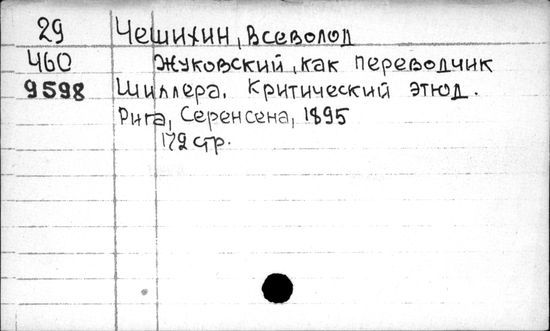 29 Чешихин, Всеволод
460 Жуковский, как переводчик
9598 Шиллера. Критический этюд.
Рига, Серенсена, 1895
172 стр.